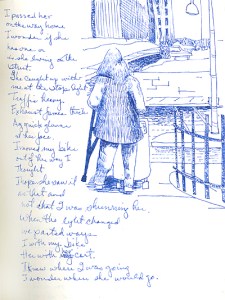 I passed her
on the way home
I wonder if she
has one or
is she living on the
street.
She caught up with
me at the stop light
Traffic heavy.
Exhaust fumes thick.
A quick glance
at her face.
I moved my bike
out of the way I
thought
I hope she saw it
as that and
not that I was shunning her.
When the light changed
we parted ways
I with my bike
Her with cart.
I knew where I was going
I wonder where she would go.